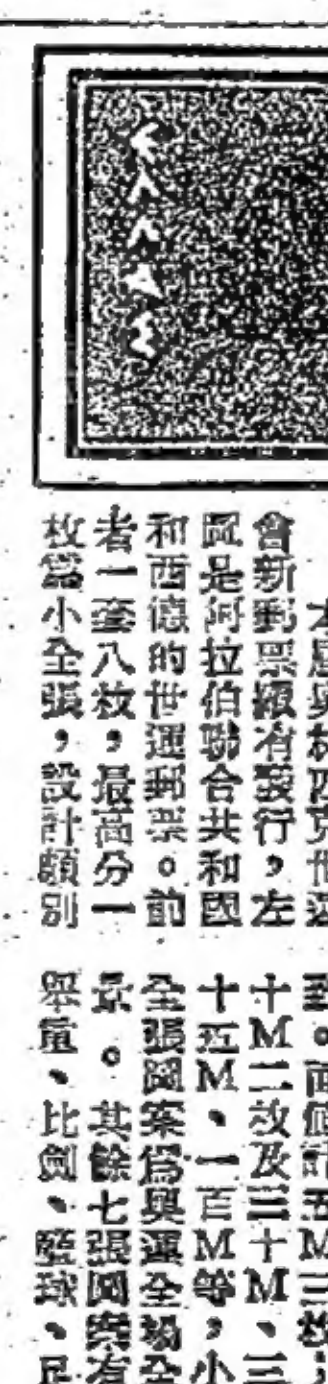 本屆奧林匹克世運
會新郵票頗有發行，左
圖是阿拉伯聯合共和國
和西德的世運郵票。前
者一套八枚，最高分一
枚爲小全張，設計頗別
。面值計五M三枚；
十M二枚及三十M、三
十五M、一百M等，小
全張圖案爲奧運全場全
景。其餘七張圖案有
舉重、比劍、籃球、足